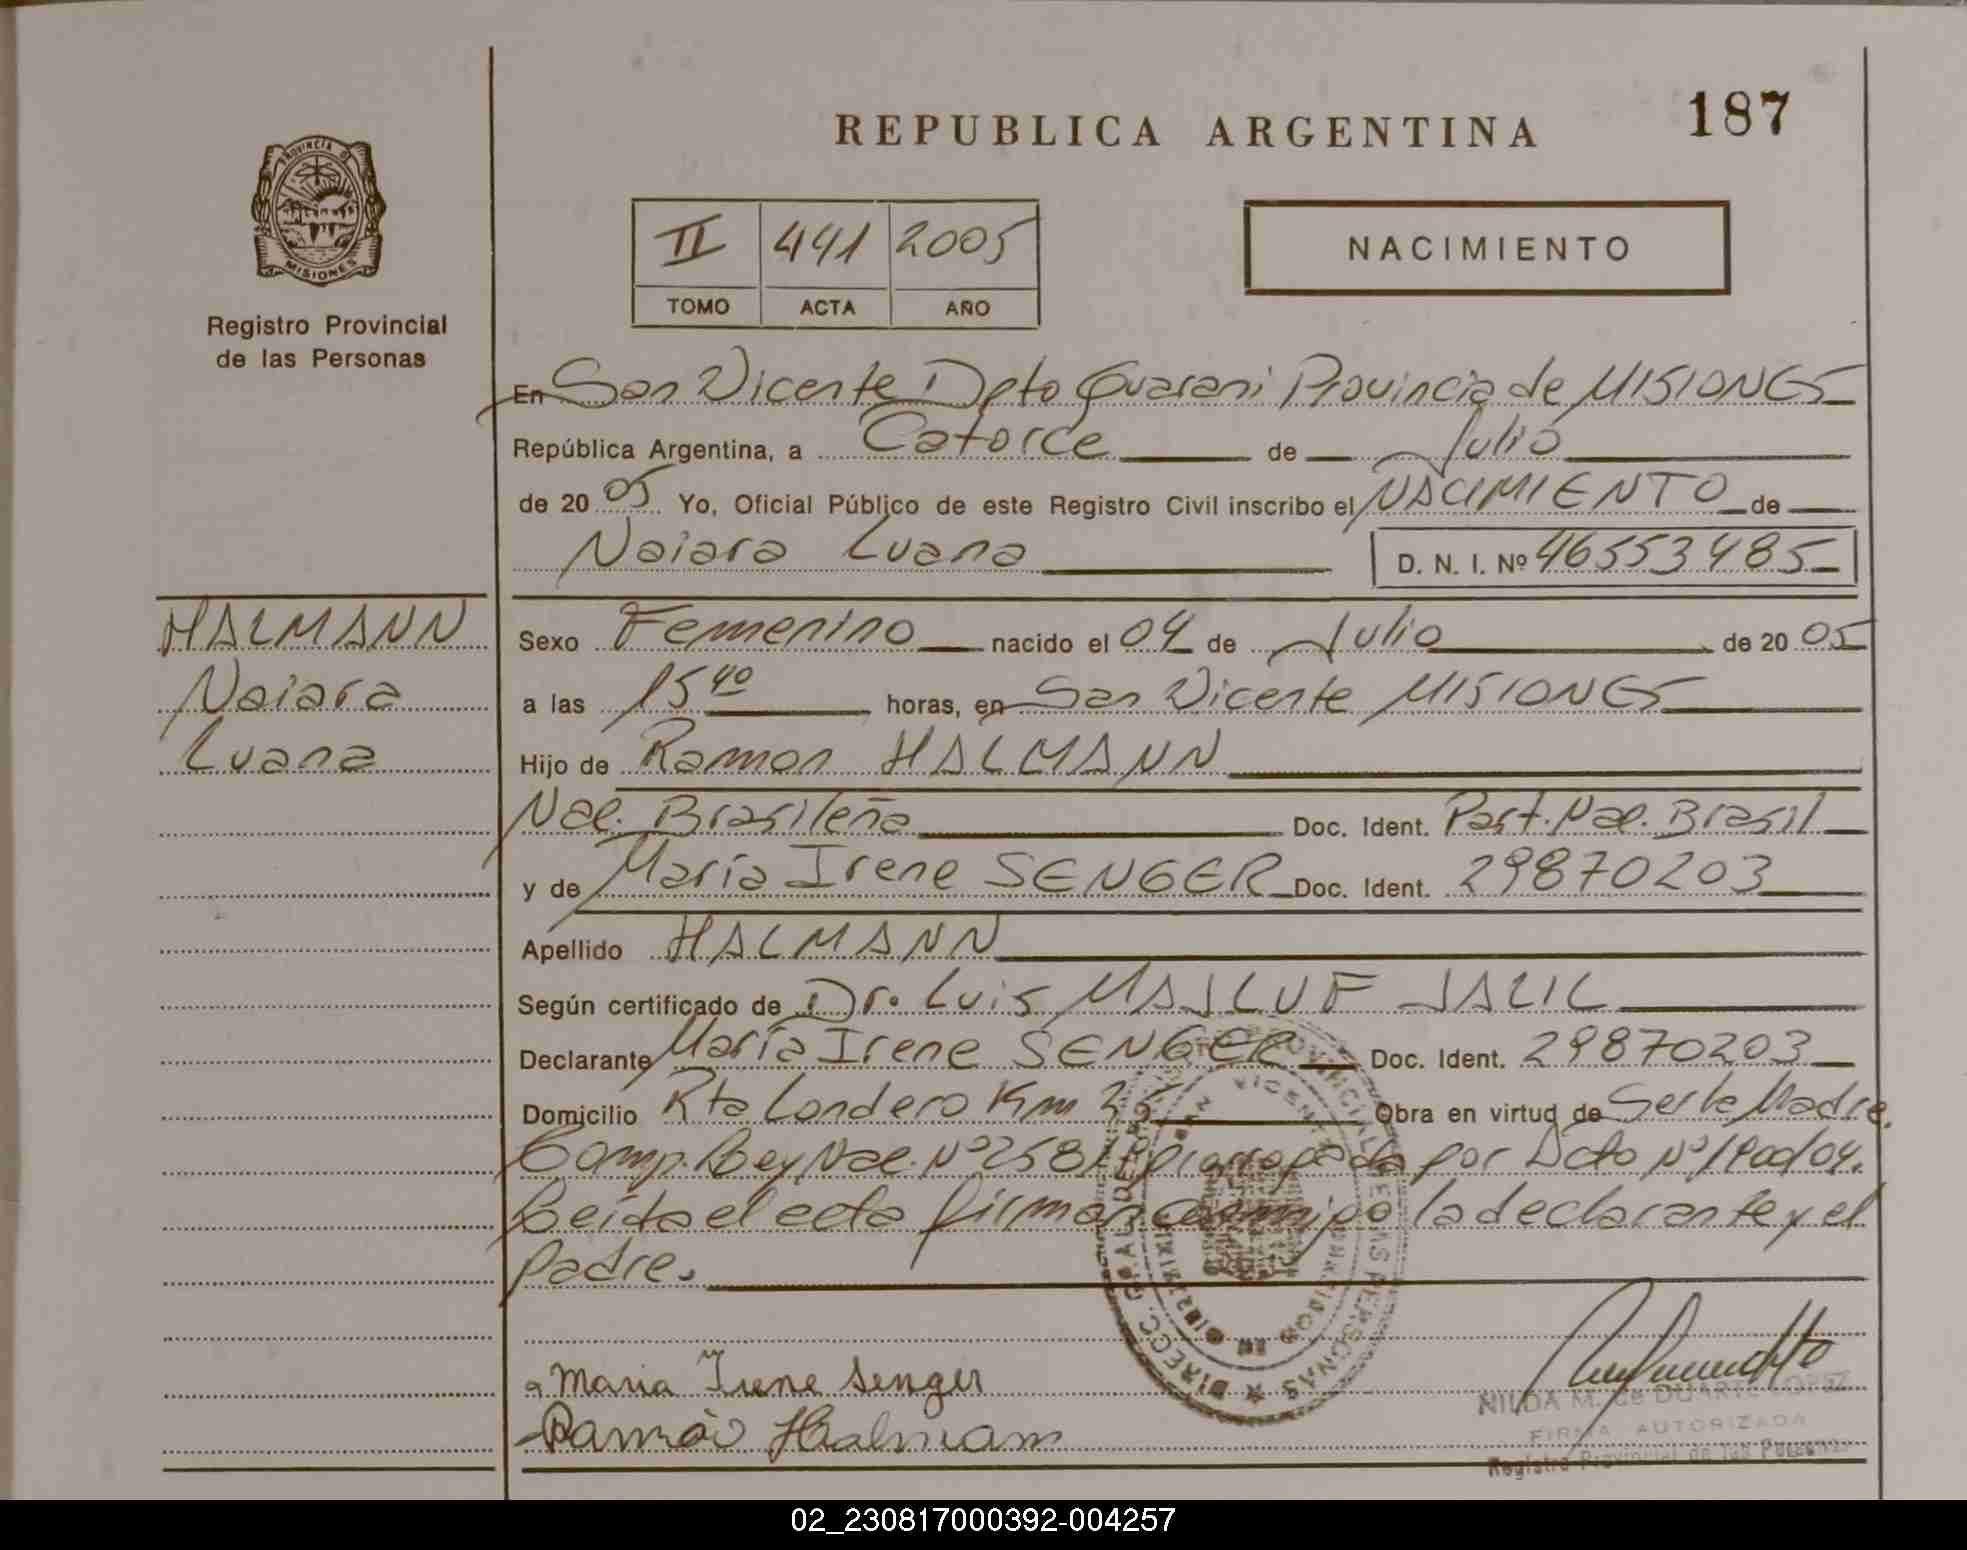 REPUBLICA ARGENTINA
187
PROVINCIA DE
MISIONES
Registro Provincial
de las Personas
II 441 2005
TOMO ACTA AÑO
NACIMIENTO
En San Vicente Dpto Guarani Provincia de MISIONES
República Argentina, a Catorce de Julio
de 20 05 Yo, Oficial Público de este Registro Civil inscribo el NACIMIENTO de
Naiara Luana D. N. I. Nº 46553485
HALMANN
Naiara
Luana
Sexo Femenino nacido el 04 de Julio de 20 05
a las 15 40 horas, en San Vicente MISIONES
Hijo de Ramon HALMANN
Nac. Brasileña Doc. Ident. Part. Nac. Brasil
y de María Irene SENGER Doc. Ident. 29870203
Apellido HALMANN
Según certificado de Dr. Luis MAJLUF JALIL
Declarante María Irene SENGER Doc. Ident. 29870203
Domicilio Rta Londero Km 35 Obra en virtud de Ser la Madre.
Comp. Ley Nac. Nº 25819 prorrogada por Dcto Nº 1900/04.
Leída el acta firman conmigo la declarante y el
padre.
Maria Irene Senger
Ramão Halmann
NILDA M. de DUARTE LOPEZ
FIRMA AUTORIZADA
Registro Provincial de las Personas
02_230817000392-004257